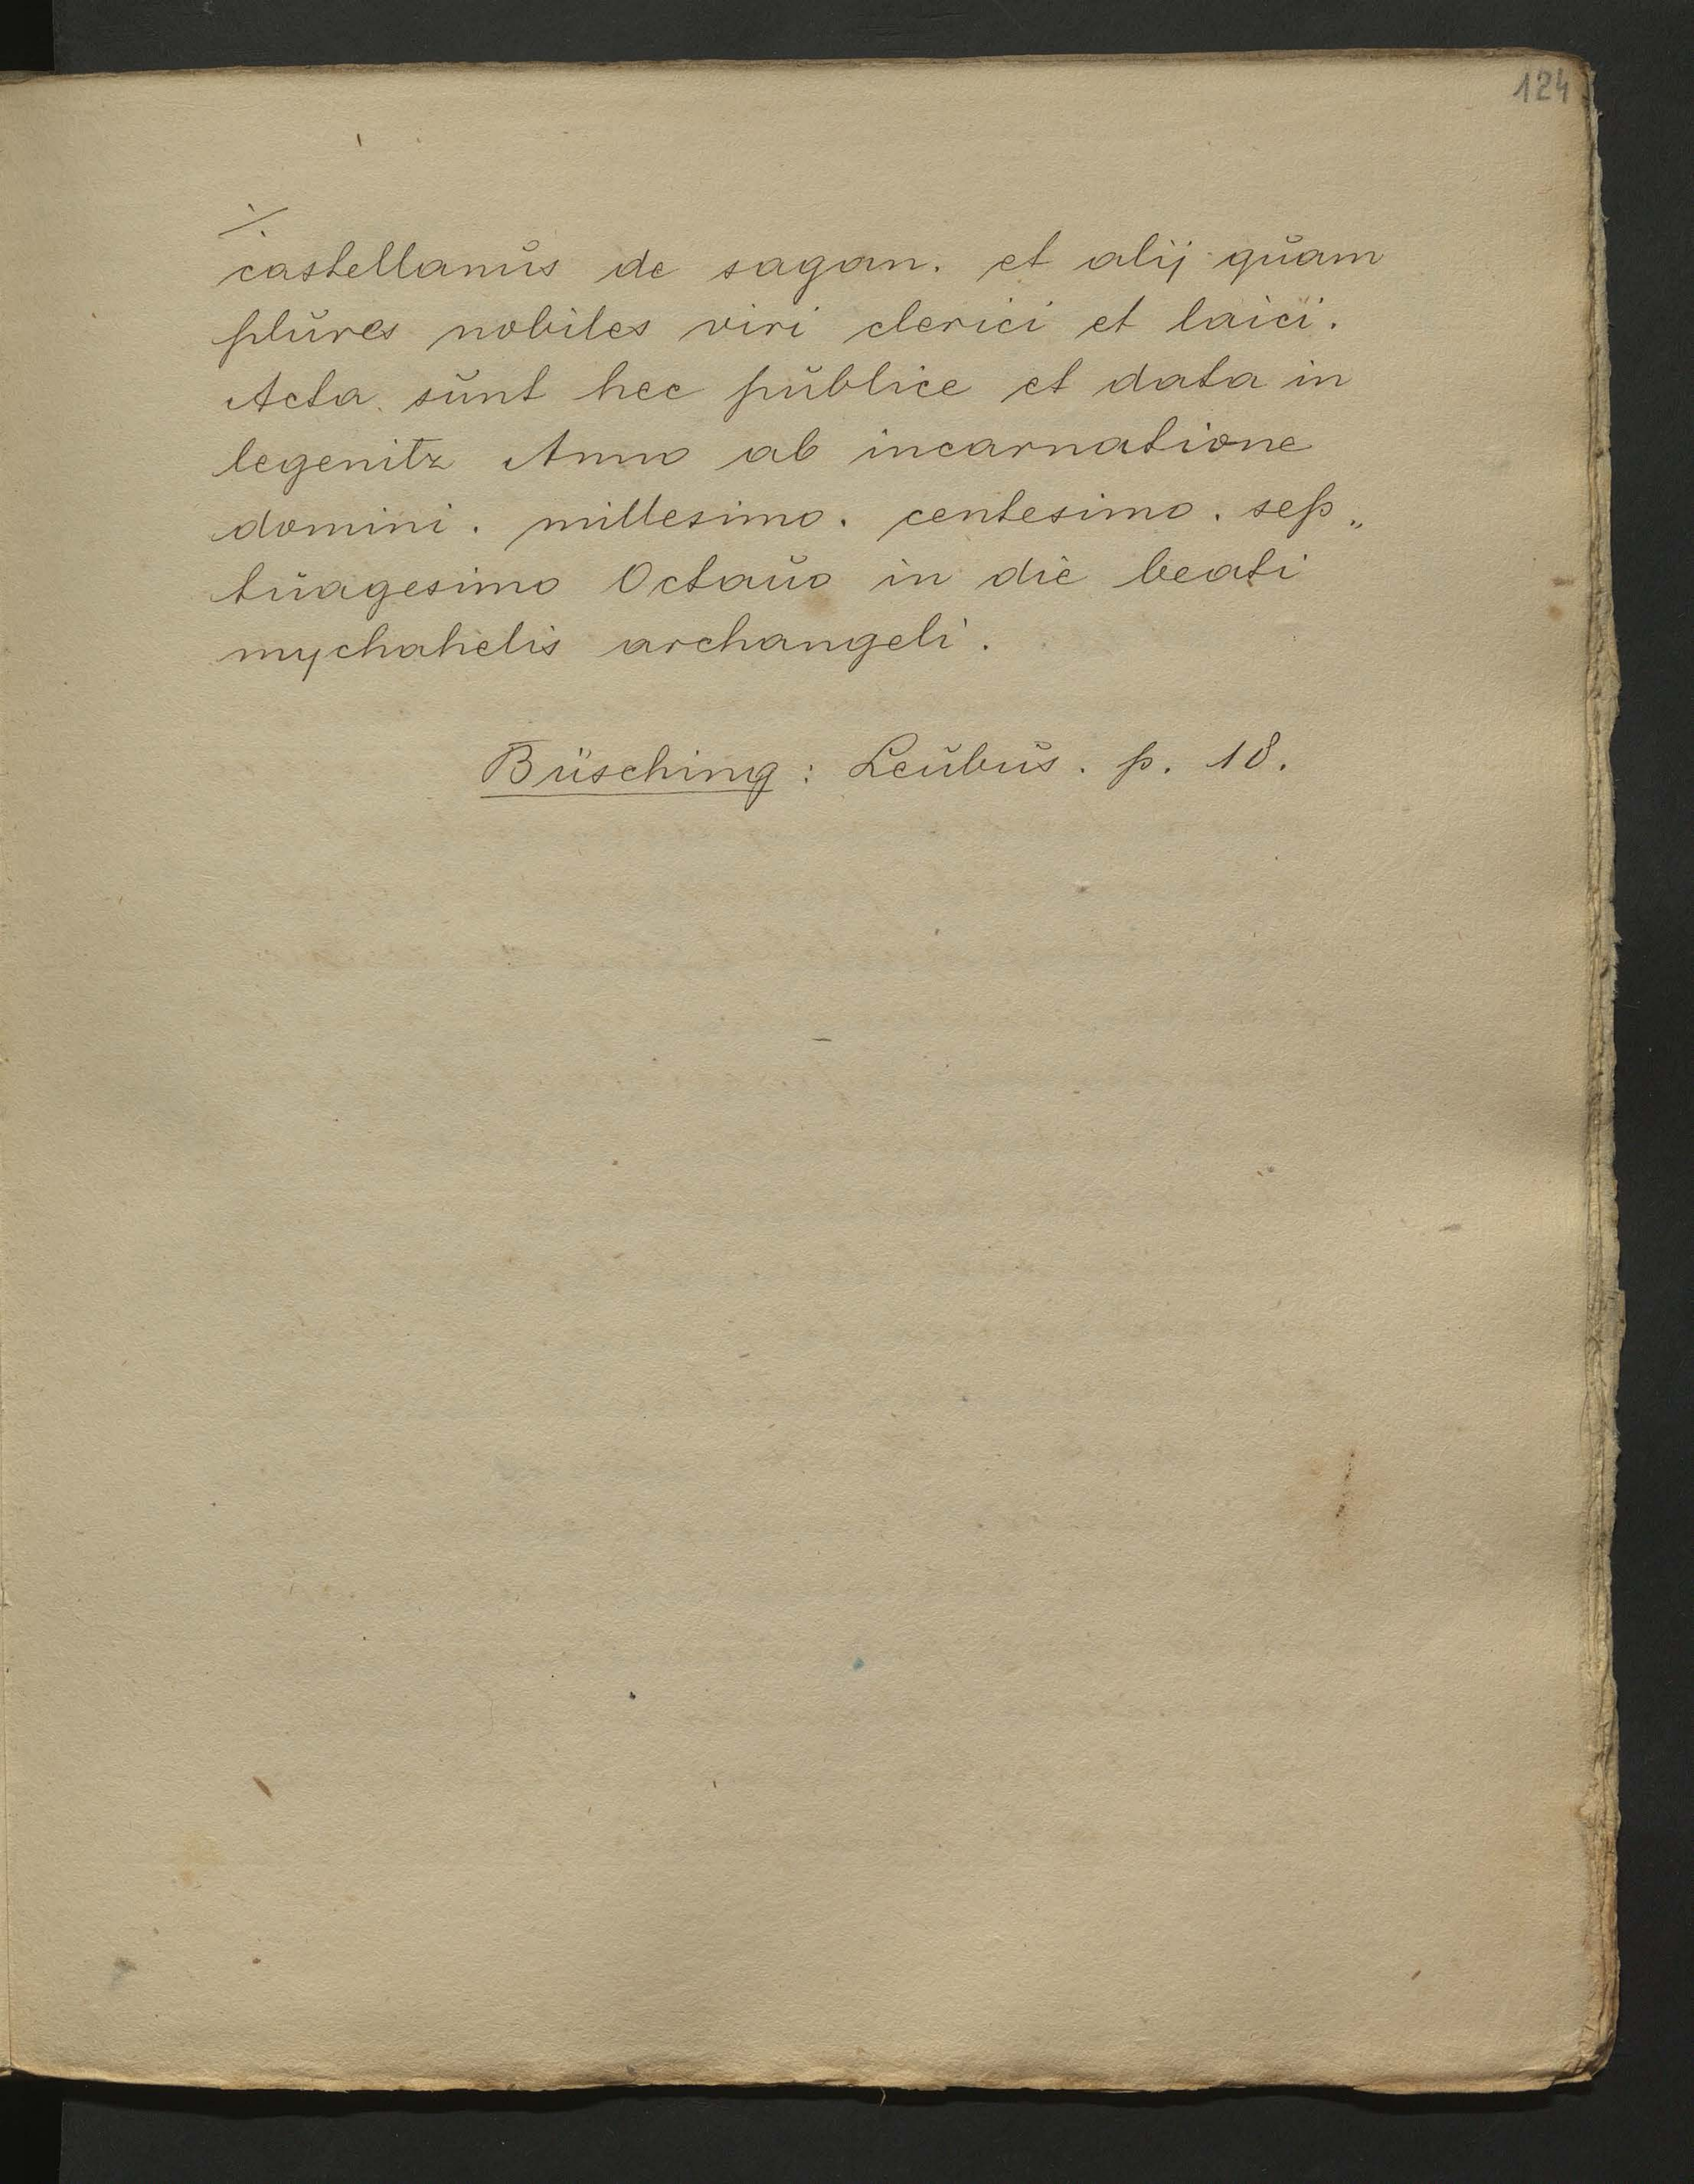 124
./.
castellanus de sagan. et alij quam
plures nobiles viri clerici et laici.
Acta sunt hec publice et data in
legenitz Anno ab incarnatione
domini. millesimo. centesimo. sep„
tuagesimo Octauo in die beati
mychahelis archangeli.
Büsching: Leubus. p. 18.